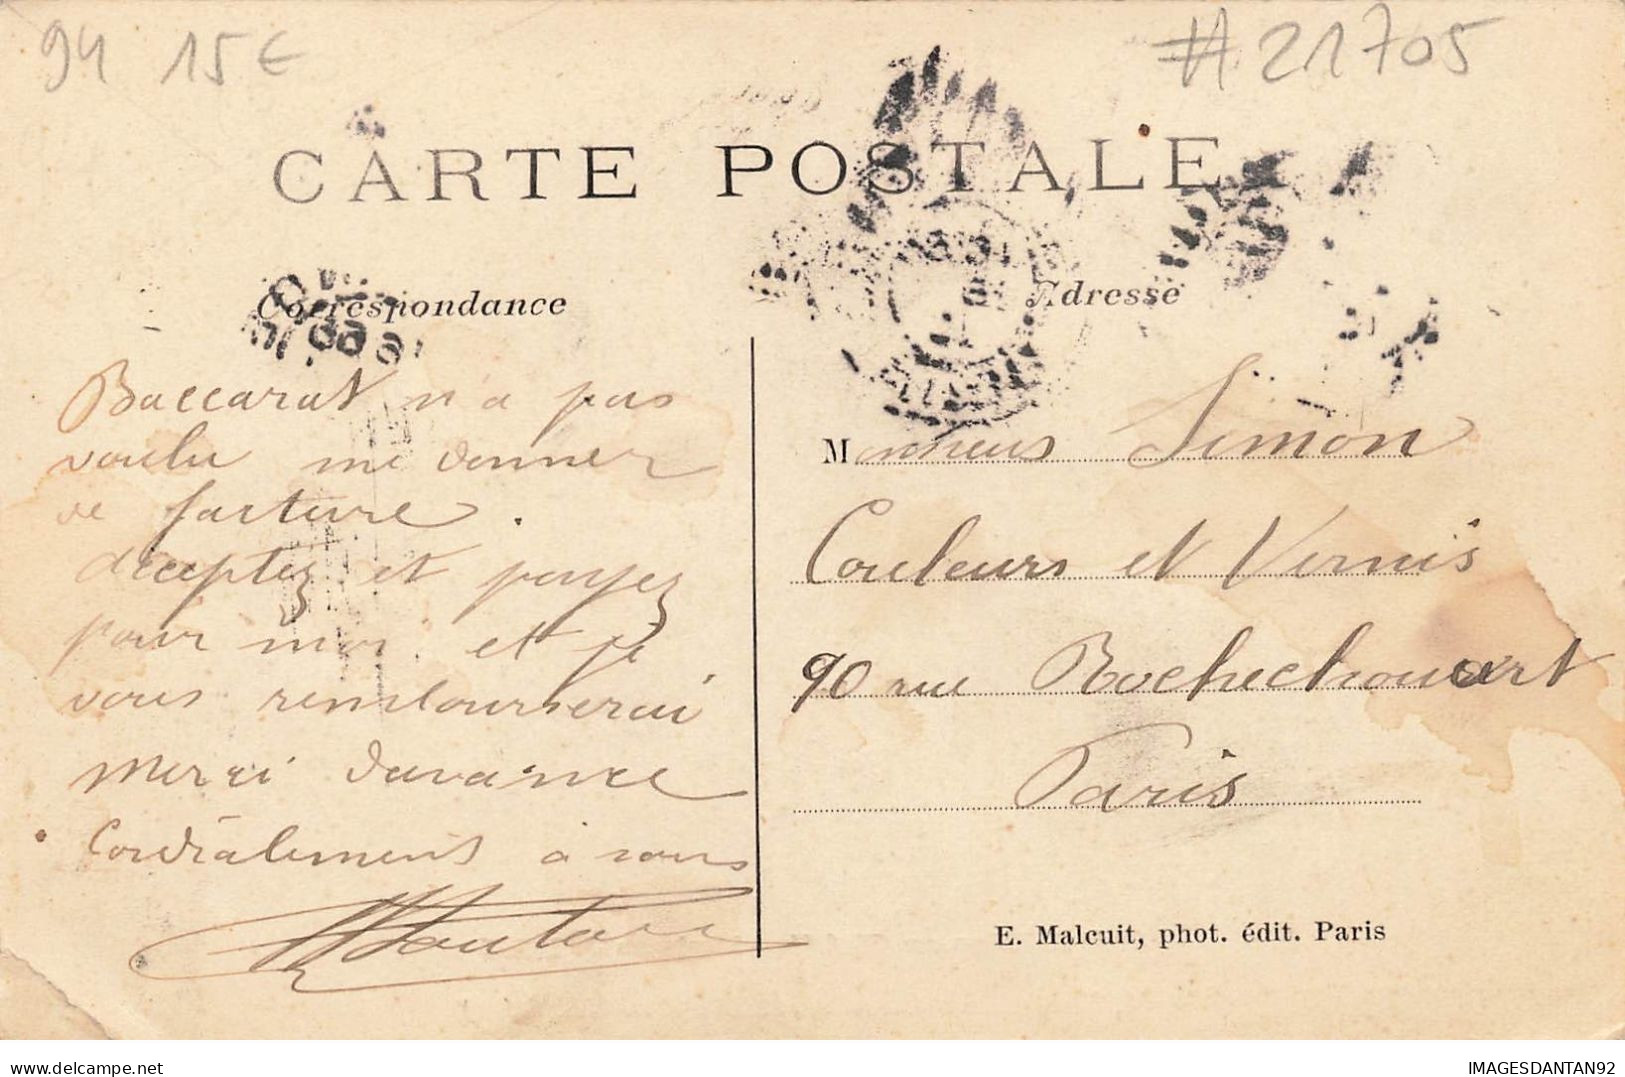 94 15€
#21705
CARTE POSTALE
Correspondance
Adresse
Baccarat n'a pas
voulu me donner
de facture.
acceptez et payez
pour moi et je
vous rembourserai
merci davance
Cordialement à vous
Monsieur Simon
Couleurs et Vernis
90 rue Rochechouart
Paris
E. Malcuit, phot. édit. Paris
IMAGESDANTAN92